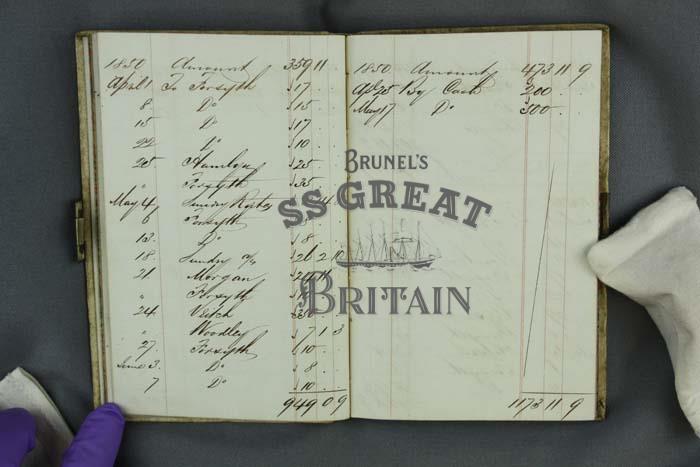 1850 Amount 359 11
April 1 To Forsyth 17
8 Do 15
15 Do 17
22 Do 10
25 25
" Forsyth 35
May 4 Sunday
6 Forsyth
13 Do 8
18 Sunday 26 2
21 Morgan
" Forsyth
24 Veitch 350
" Woodley 7 1 3
27 Forsyth 10
June 3 Do 8
7 Do 10
949 0 9
1850 Amount 473 11 9
Apl 25 By Cash 200
May 17 Do 500
1173 11 9
BRUNEL'S
SS GREAT
BRITAIN